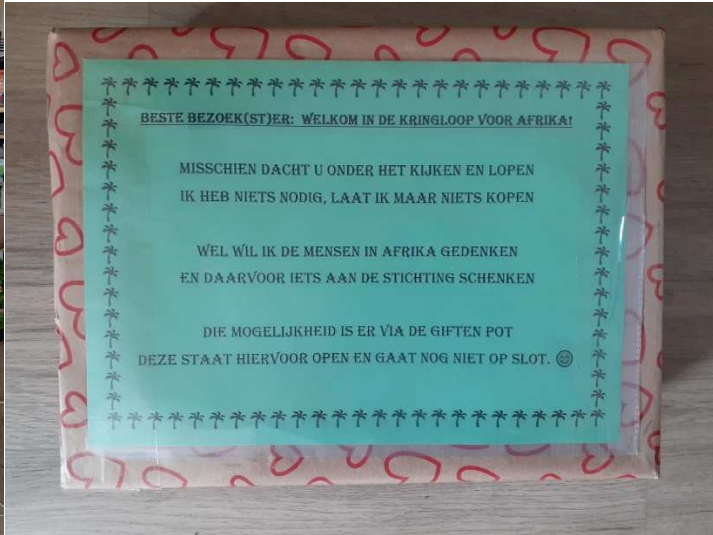 BESTE BEZOEK(ST)ER: WELKOM IN DE KRINGLOOP VOOR AFRIKA!
MISSCHIEN DACHT U ONDER HET KIJKEN EN LOPEN
IK HEB NIETS NODIG, LAAT IK MAAR NIETS KOPEN
WEL WIL IK DE MENSEN IN AFRIKA GEDENKEN
EN DAARVOOR IETS AAN DE STICHTING SCHENKEN
DIE MOGELIJKHEID IS ER VIA DE GIFTEN POT
DEZE STAAT HIERVOOR OPEN EN GAAT NOG NIET OP SLOT. 😊